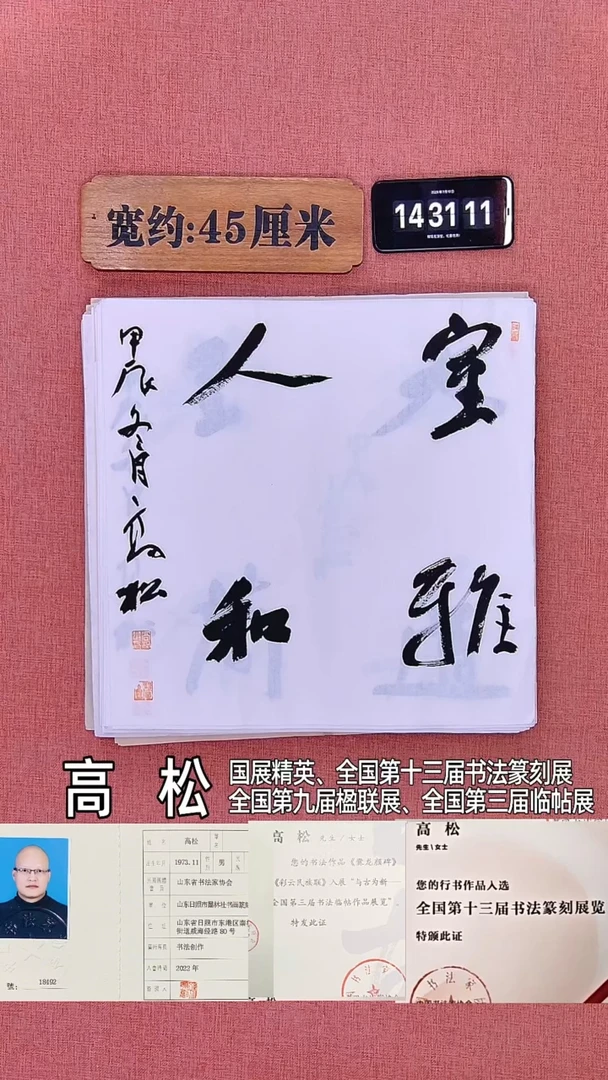 宽约:45厘米
14 31 11
室雅
人和
甲辰冬月、高松
高 松
国展精英、全国第十三届书法篆刻展
全国第九届楹联展、全国第三届临帖展
高松
1973.11
男
山东省书法家协会
山东省日照市东港区
街道威海径路80号
书法创作
2022年
號:
18492
高 松 先生\女士
您的书法作品《爨龙颜碑》
《彩云民族联》入展“与古为新——
全国第三届临帖作品展览”、
特发此证
高 松
先生\女士
您的行书作品入选
全国第十三届书法篆刻展览
特颁此证